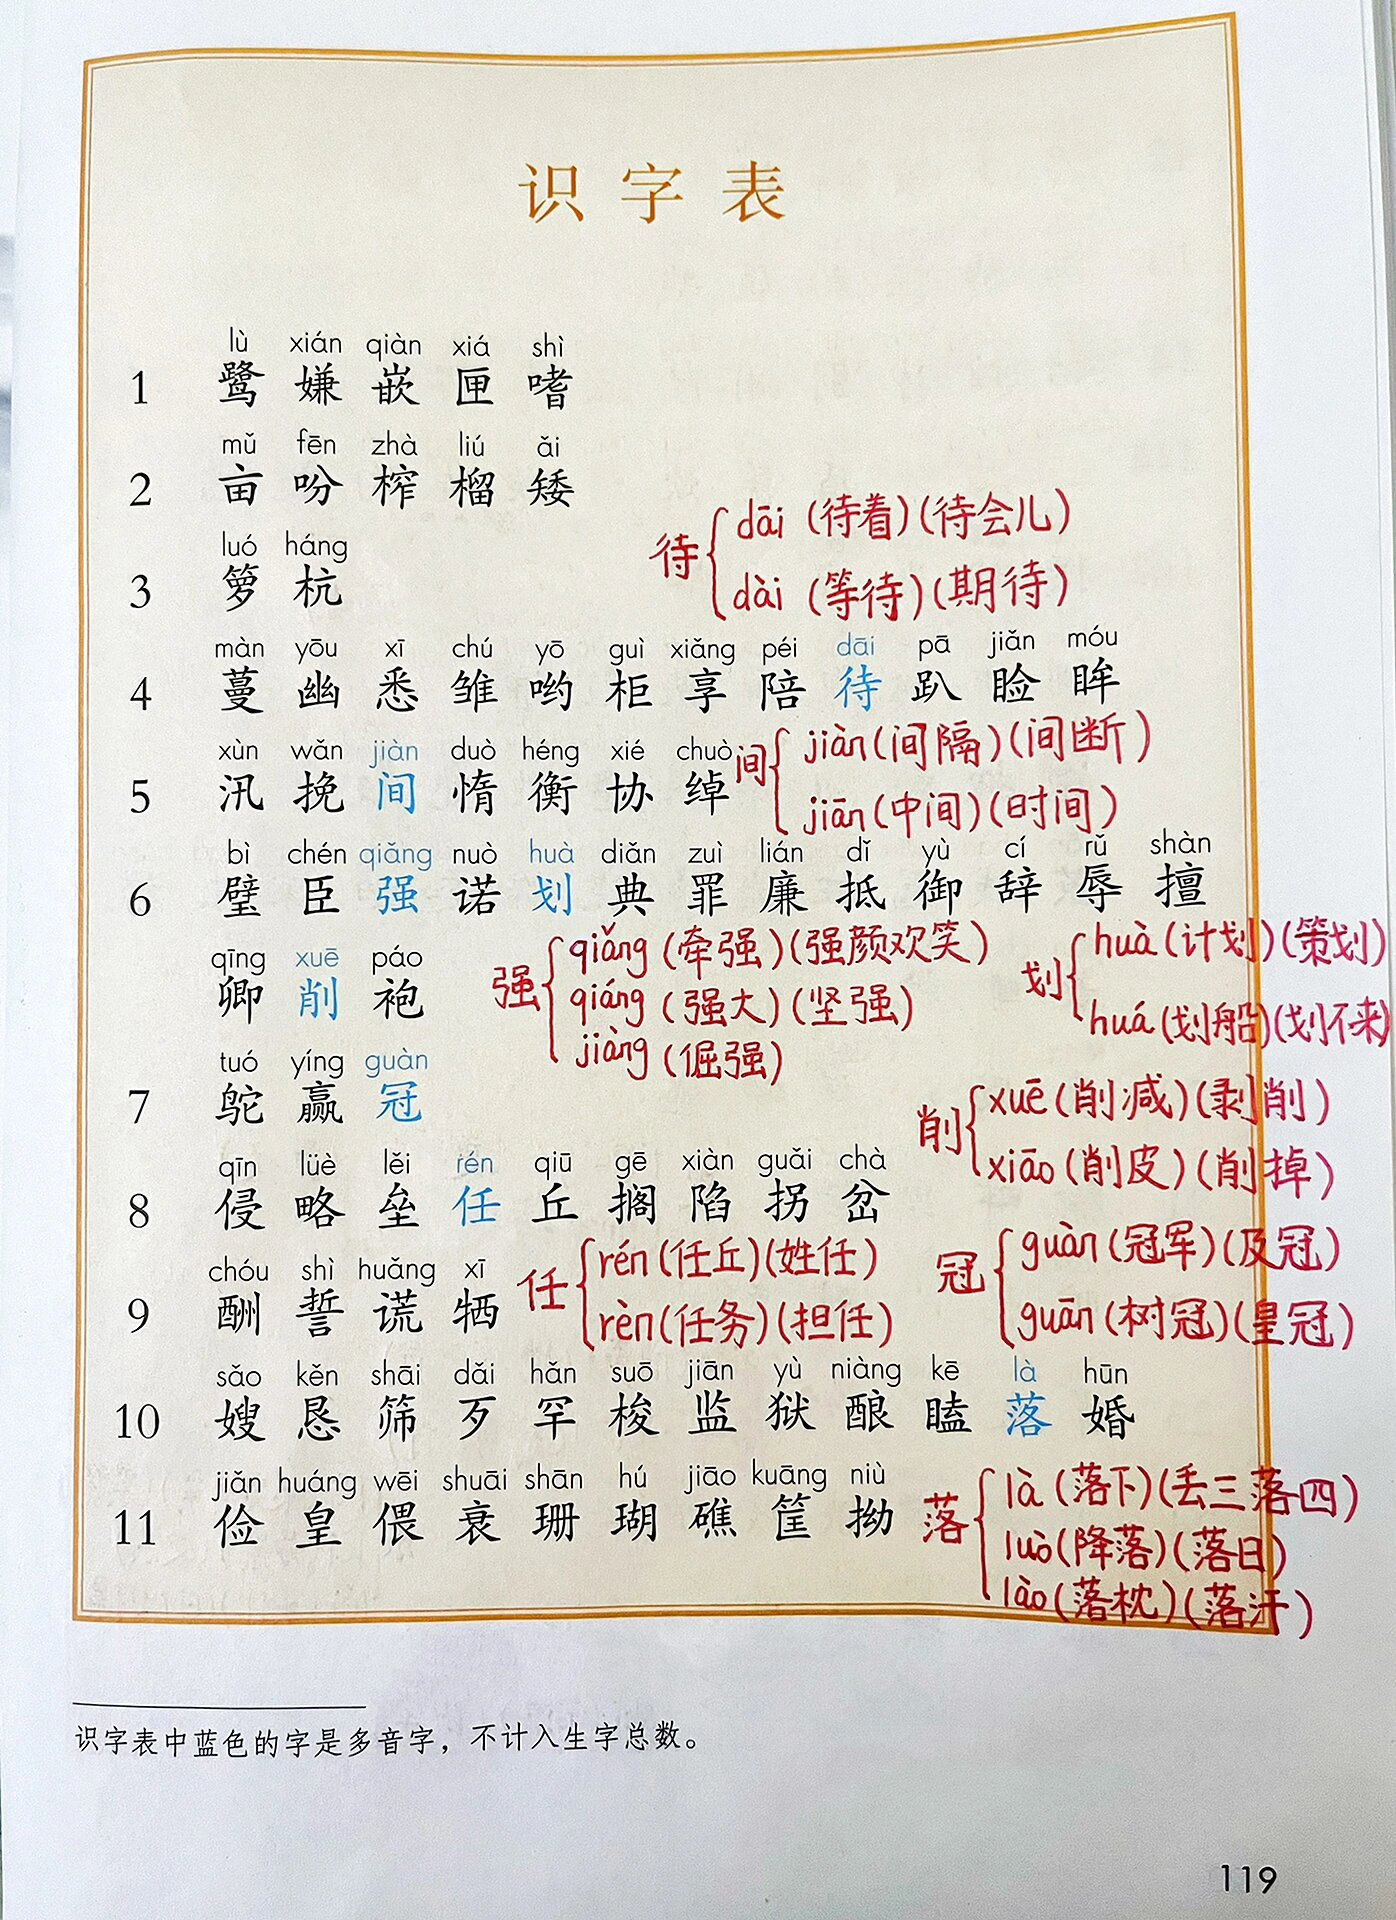 识字表
lù xián qiàn xiá shì
1 鹭 嫌 嵌 匣 嗜
mǔ fēn zhà liú ǎi
2 亩 吩 榨 榴 矮
待 dāi (待着)(待会儿)
dài (等待)(期待)
luó háng
3 箩 杭
màn yōu xī chú yō guì xiǎng péi dāi pā jiǎn móu
4 蔓 幽 悉 雏 哟 柜 享 陪 待 趴 睑 眸
xùn wǎn jiàn duò héng xié chuò
5 汛 挽 间 惰 衡 协 绰
间 jiàn(间隔)(间断)
jiān(中间)(时间)
bì chén qiǎng nuò huà diǎn zuì lián dǐ yù cí rǔ shàn
6 璧 臣 强 诺 划 典 罪 廉 抵 御 辞 辱 擅
qīng xuē páo
卿 削 袍
强 qiǎng(牵强)(强颜欢笑)
qiáng(强大)(坚强)
jiàng(倔强)
划 huà(计划)(策划)
huá(划船)(划不来)
tuó yíng guàn
7 鸵 赢 冠
削 xuē(削减)(剥削)
xiāo(削皮)(削掉)
qīn lüè lěi rén qiū gē xiàn guǎi chà
8 侵 略 垒 任 丘 搁 陷 拐 岔
任 rén(任丘)(姓任)
rèn(任务)(担任)
冠 guàn(冠军)(及冠)
guān(树冠)(皇冠)
chóu shì huǎng xī
9 酬 誓 谎 牺
sǎo kěn shāi dǎi hǎn suō jiān yù niàng kē là hūn
10 嫂 恳 筛 歹 罕 梭 监 狱 酿 瞌 落 婚
jiǎn huáng wēi shuāi shān hú jiāo kuāng niù
11 俭 皇 偎 衰 珊 瑚 礁 筐 拗
落 là(落下)(丢三落四)
luò(降落)(落日)
lào(落枕)(落汗)
识字表中蓝色的字是多音字，不计入生字总数。
119